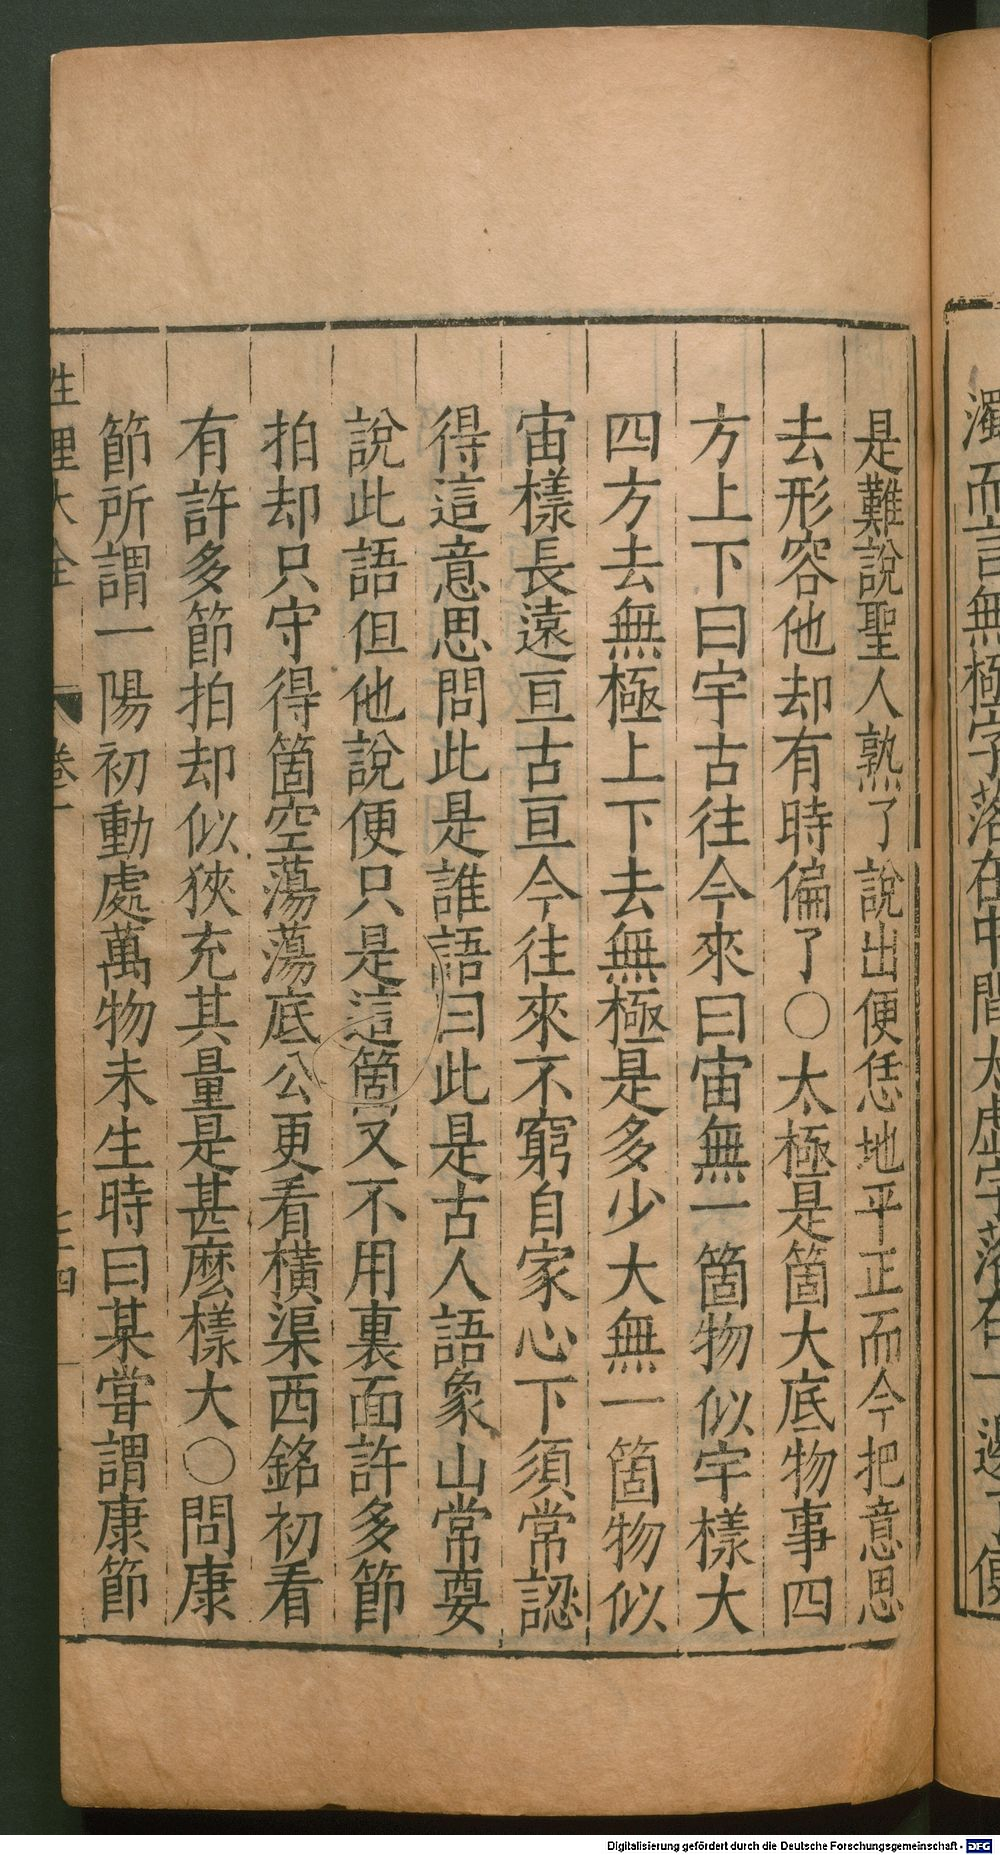 濁而言無極字落在中間太虛字落在一邊了便
是難說聖人熟了說出便恁地平正而今把意思
去形容他却有時偏了○太極是箇大底物事四
方上下曰宇古往今來曰宙無一箇物似宇樣大
四方去無極上下去無極是多少大無一箇物似
宙樣長遠亘古亘今往來不窮自家心下須常認
得這意思問此是誰語曰此是古人語象山常要
說此語但他說便只是這箇又不用裏面許多節
拍却只守得箇空蕩蕩底公更看橫渠西銘初看
有許多節拍却似狹充其量是甚麽樣大○問康
節所謂一陽初動處萬物未生時曰某嘗謂康節
性理大全 卷一 七十四
Digitalisierung gefördert durch die Deutsche Forschungsgemeinschaft - DFG